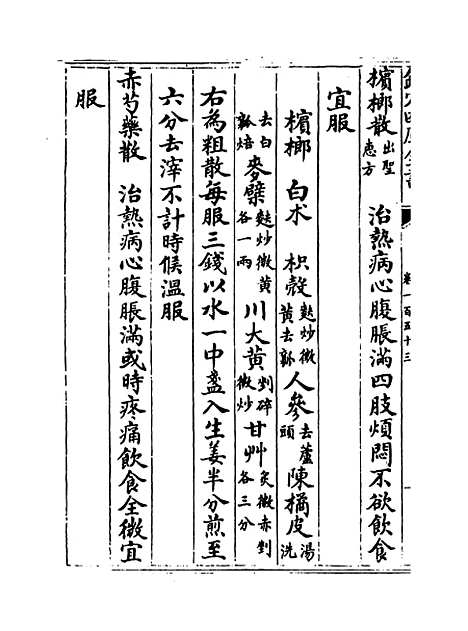 卷一百五十三
檳榔散 出聖惠方 治熱病心腹脹滿四肢煩悶不欲飲食
宜服
檳榔 白术 枳殼 麩炒微黃去瓤 人參 去蘆頭 陳橘皮 湯洗
去白瓤焙 麥櫱 麩炒微黃各一兩 川大黃 剉碎微炒 甘艸 炙微赤剉各三分
右為粗散每服三錢以水一中盞入生姜半分煎至
六分去滓不計時候溫服
赤芍藥散 治熱病心腹脹滿或時疼痛飲食全微宜
服